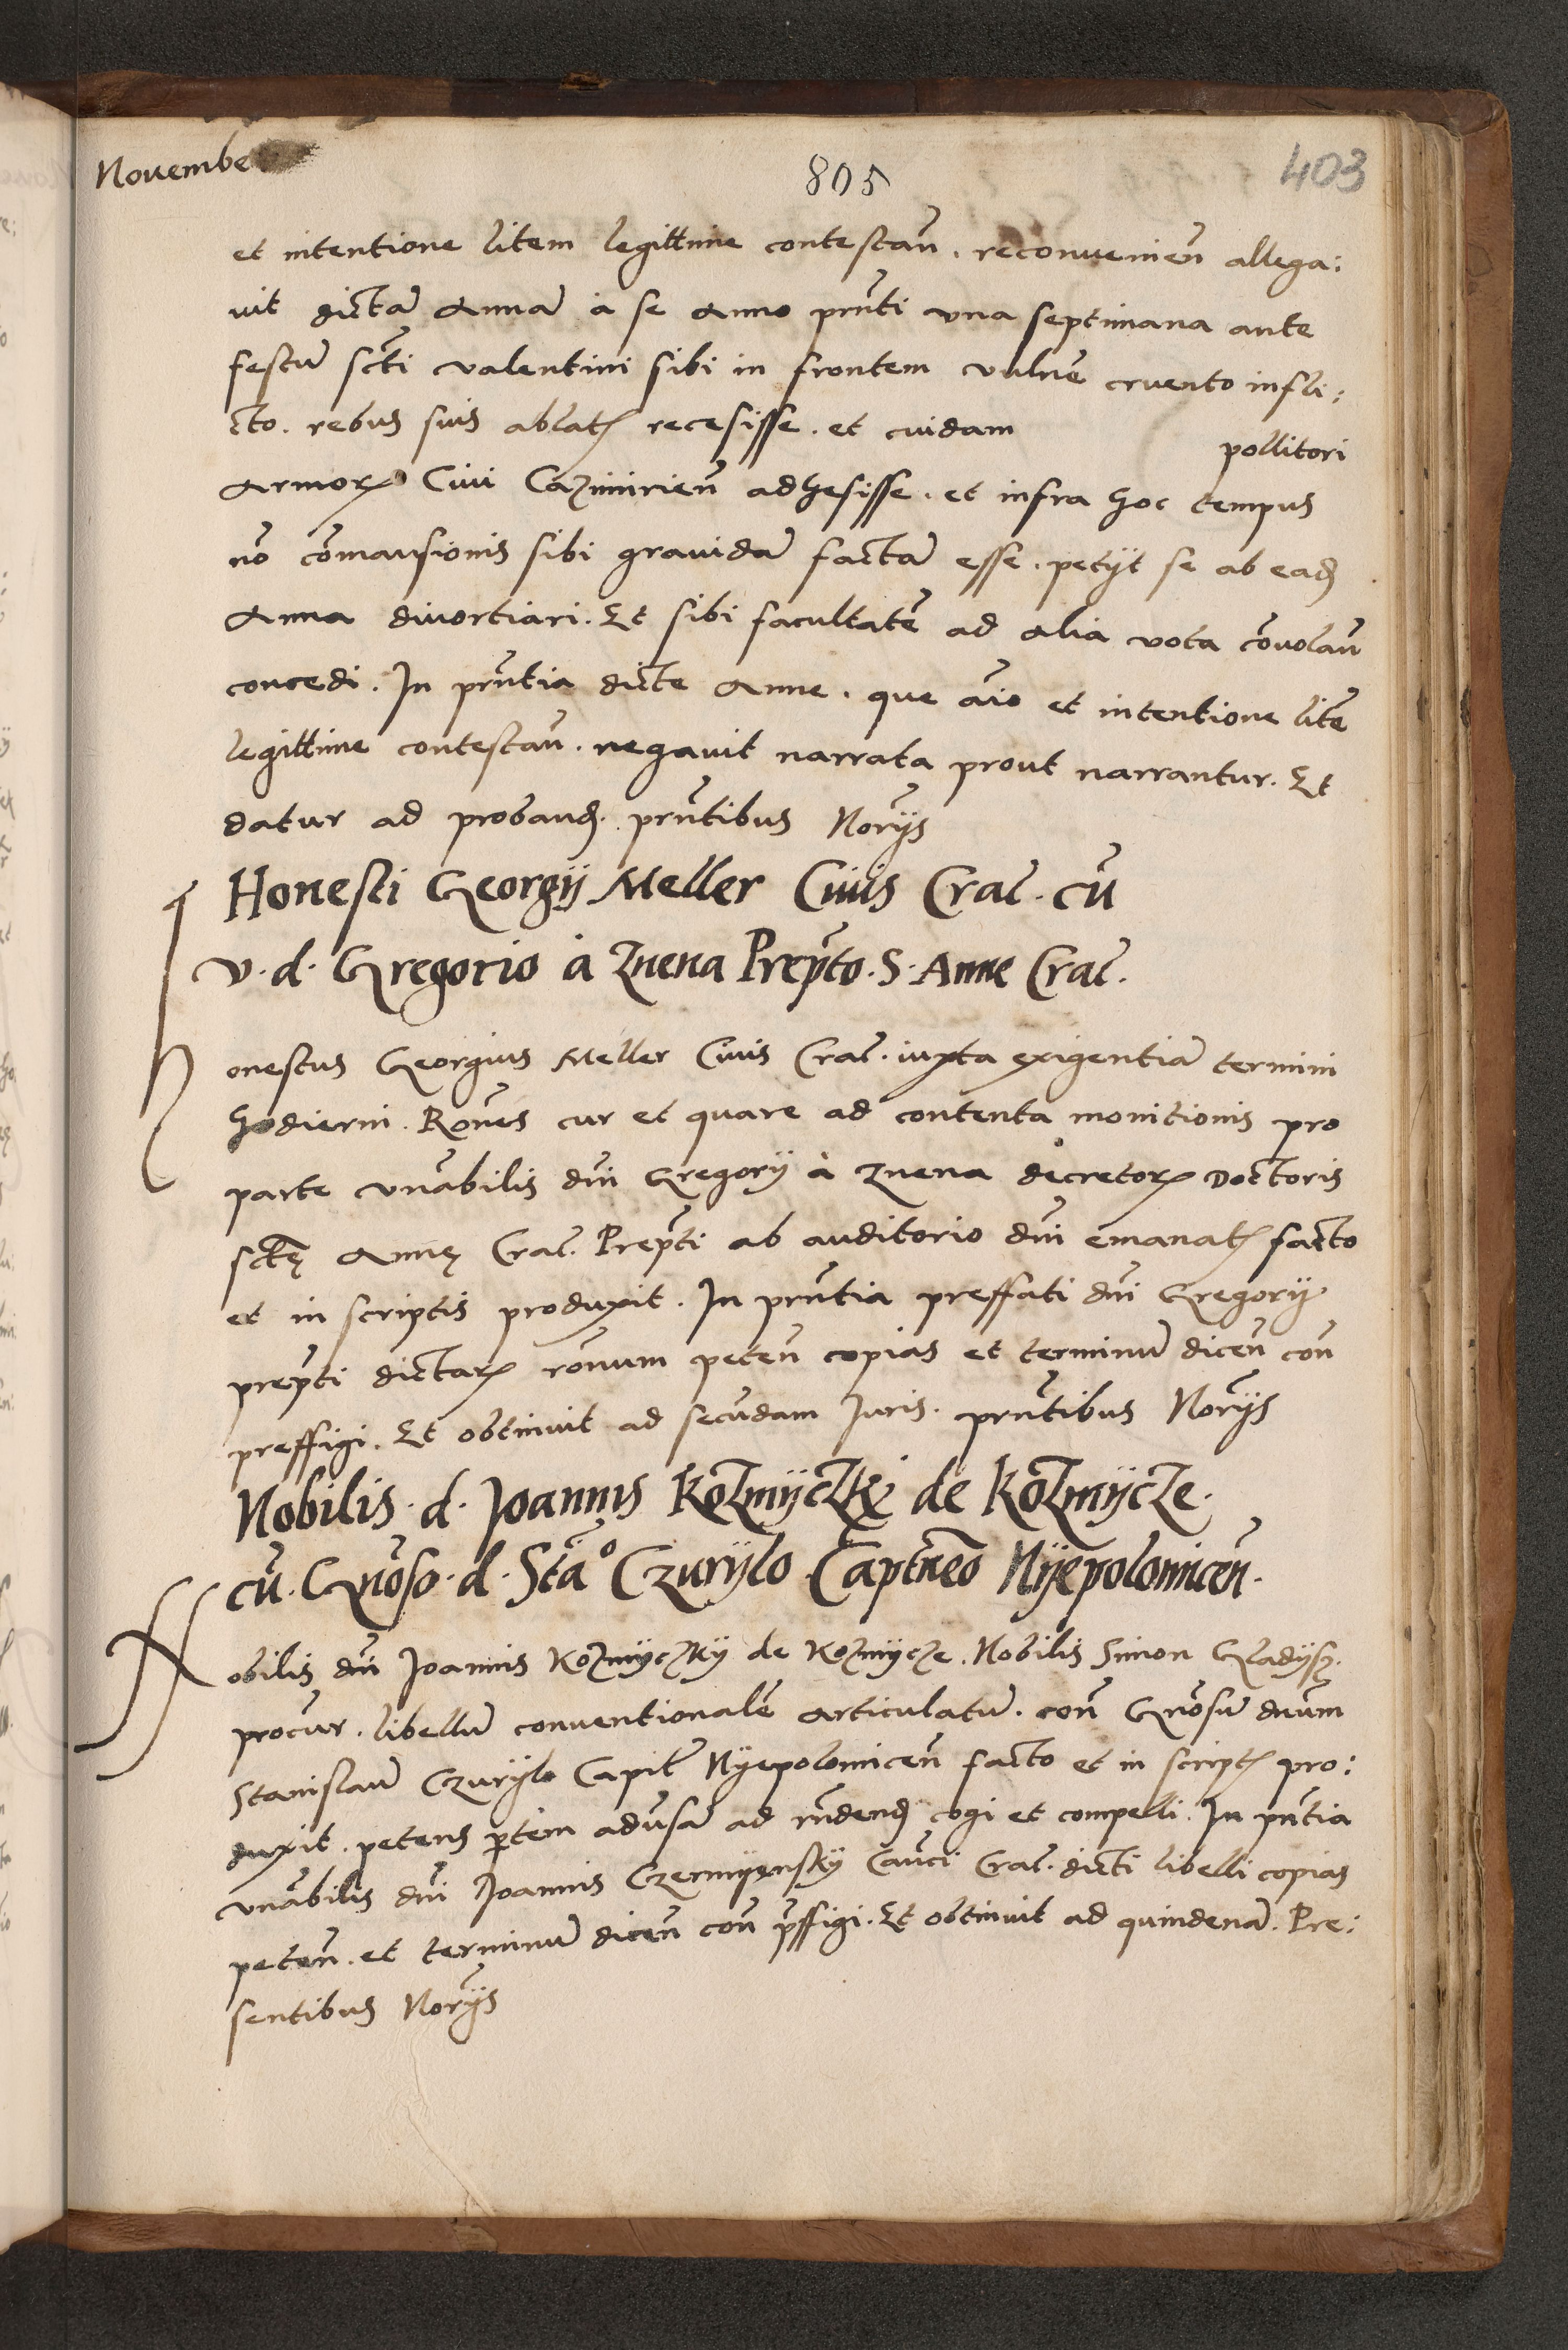 Novembe
805
403
et intentione litem legittime contestan̄. reconvenien̄ allega:
vit dictā Annā à se Anno pn̄ti una septimana ante
festū scti valentini sibi in frontem vulnē cruento infli:
cto. rebus suis ablatꝭ recesisse. et cuidam pollitori
Armoꝝ Civi Cazimirien̄ adhesisse. et infra hoc tempus
nō cōmansionis sibi gravidā factā esse. petijt se ab eadꝫ
Anna divortiari. Et sibi facultatē ad alia vota cōvolan̄
concedi. In pn̄tia dicte Anne. que aīo et intentione litē
legittime contestan̄. negavit narrata prout narrantur. Et
datur ad proband̄. pn̄tibus Norijs
Honesti Georgij Meller Civis Crac̄. cū
v. d. Gregorio à Znena Prep̄to. S. Anne Crac̄.
Honestus Georgius Meller Civis Crac̄. iuxta exigentiā termini
hodierni. Rōnes cur et quare ad contenta monitionis pro
parte vn̄abilis dn̄i Gregorij à Znena decretoꝝ Doctoris
sctę Annę Crac̄. Prep̄ti ab auditorio dn̄i emanatꝭ facto
et in scriptis produxit. In pn̄tia preffati dn̄i Gregorij
prep̄ti dictaꝝ rōnum peten̄ copias et terminū dicen̄ con̄
preffigi. Et obtinuit ad secūdam Juris. pn̄tibus Norijs
Nobilis. d. Joannis Kozmyczky de Kozmycze.
cū. Gn̄oso. d. Stā° Czurylo Captneo Nyepolomicen̄.
Nobilis dn̄i Joannis Kozmyczky de Kozmycze. Nobilis Simon Gladysz.
procur. libellū conventionalē articulatū. con̄ Gn̄osū dn̄um
Stanislaū Czurylo Capit̄ Nyepolomicen̄ facto et in scriptꝭ pro:
duxit. petens p̄tem adv̄sā ad rn̄dend̄ cogi et compelli. In pn̄tia
vn̄abilis dn̄i Joannis Czermyensky Can̄ci Crac̄. dicti libelli copias
peten̄. et terminū dicen̄ con̄ p̄ffigi. Et obtinuit ad quindenā. Pre:
sentibus Norijs